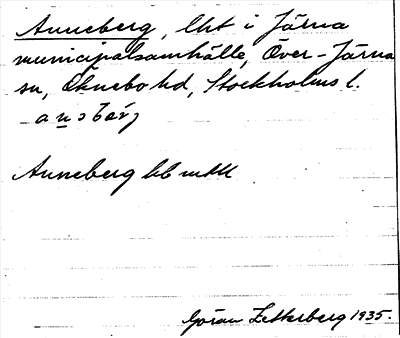 Anneberg, lht i Järna
municipalsamhälle, Över-Järna
sn, Öknebo hd, Stockholms l.
Anneberg
Göran Zetterberg 1935.